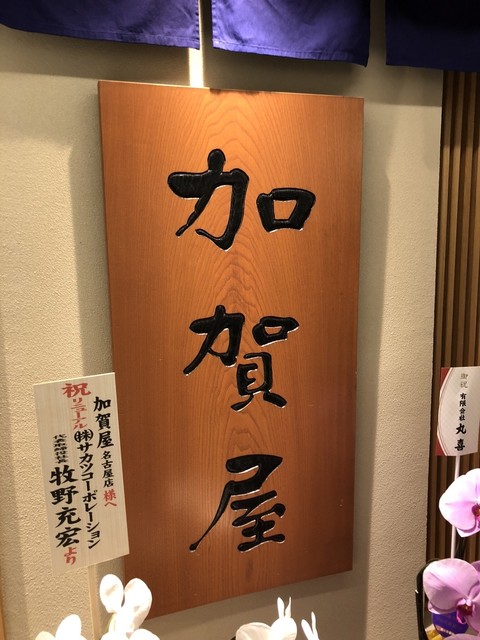 加賀屋
加賀屋 名古屋店 様へ
祝 リニューアル
㈱サカツコーポレーション
代表取締役社長
牧野充宏より
御祝
有限会社
丸喜